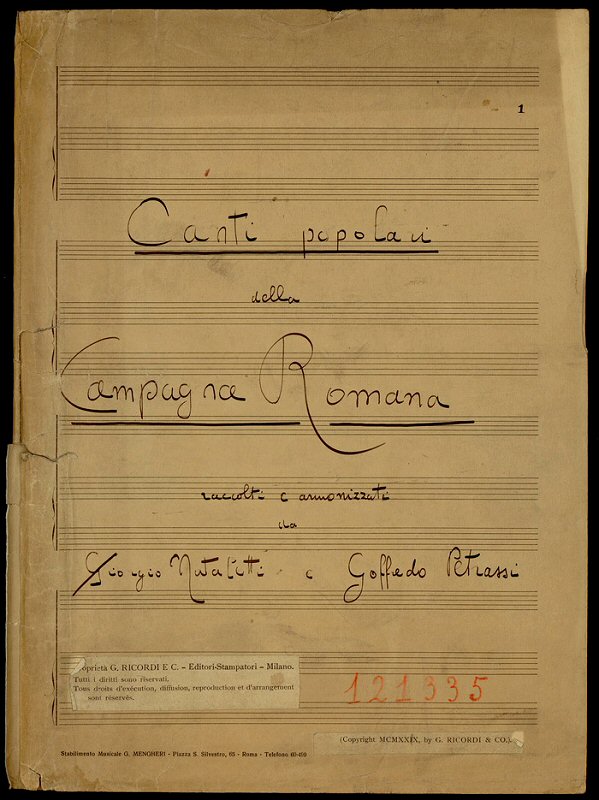 1
Canti popolari
della
Campagna Romana
raccolti e armonizzati
da
Giorgio Nataletti e Goffredo Petrassi
Proprietà G. RICORDI E C. – Editori-Stampatori – Milano.
Tutti i diritti sono riservati.
Tous droits d'exécution, diffusion, reproduction et d'arrangement
sont réservés.
121335
(Copyright MCMXXIX, by G. RICORDI & CO.).
Stabilimento Musicale G. MENGHERI - Piazza S. Silvestro, 65 - Roma - Telefono